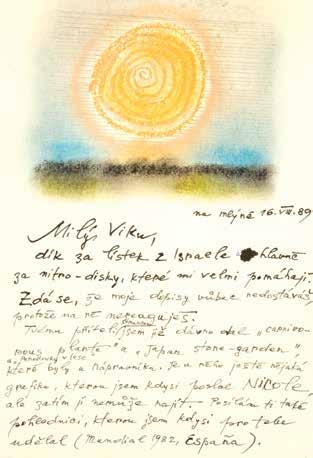 na mlýně 16.VIII.89
Milý Viku,
dík za lístek z Izraele hlavně
za nitro-disky, které mi velmi pomáhají.
Zdá se, že moje dopisy vůbec nedostáváš,
protože na ně nereaguješ.
Tvému příteli jsem již dávno dal „carnivo-
rous plants" a „Japan stone-garden",
a „Povídky v lese"
které byly u nápravníka. Je u něho ještě nějaká
grafika, kterou jsem kdysi poslal NICOLE,
ale zatím ji nemůže najít. Posílám ti také
pohlednici, kterou jsem kdysi pro tebe
udělal (Mundial 1982, España).